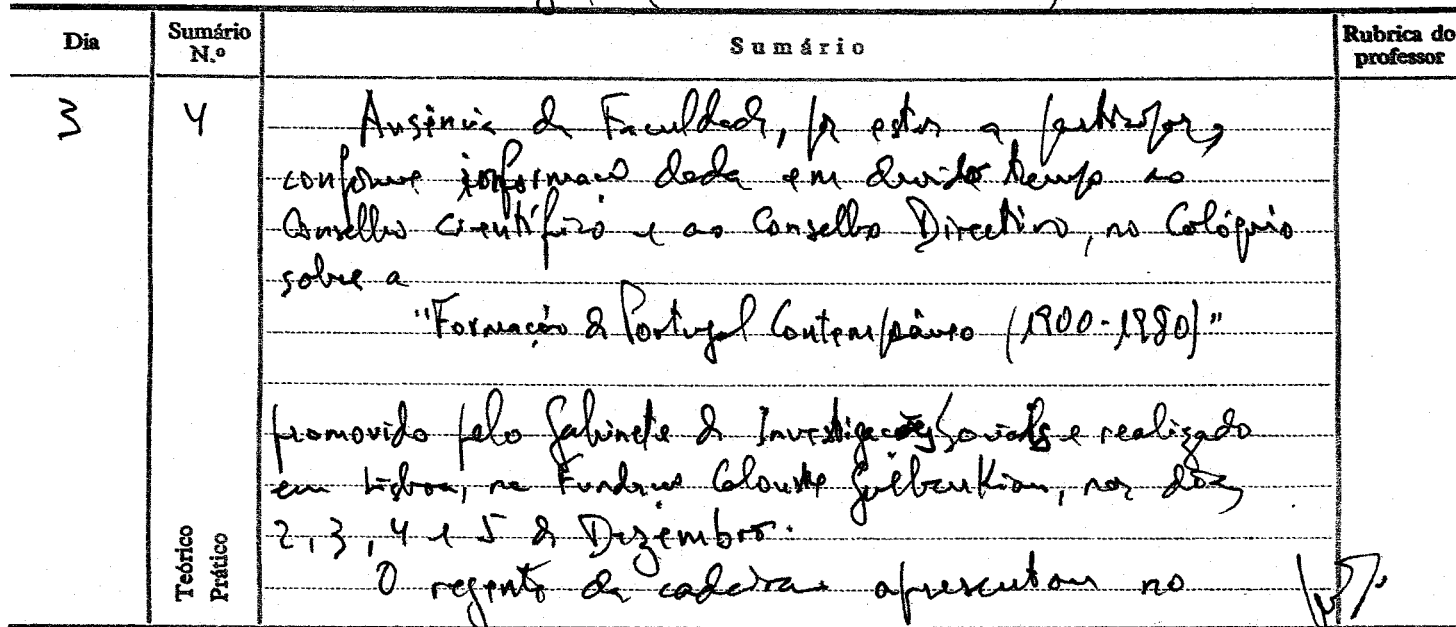 Dia
Sumário N.º
Sumário
Rubrica do professor
3
4
Ausência da Faculdade, por estar a participar,
conforme informação dada em devido tempo ao
Conselho Científico e ao Conselho Directivo, no Colóquio
sobre a
"Formação de Portugal Contemporâneo (1900-1980)"
promovido pelo Gabinete de Investigações Sociais e realizado
em Lisboa, na Fundação Calouste Gulbenkian, nos dias
2, 3, 4 e 5 de Dezembro.
O regente da cadeira apresentou no
Teórico
Prático